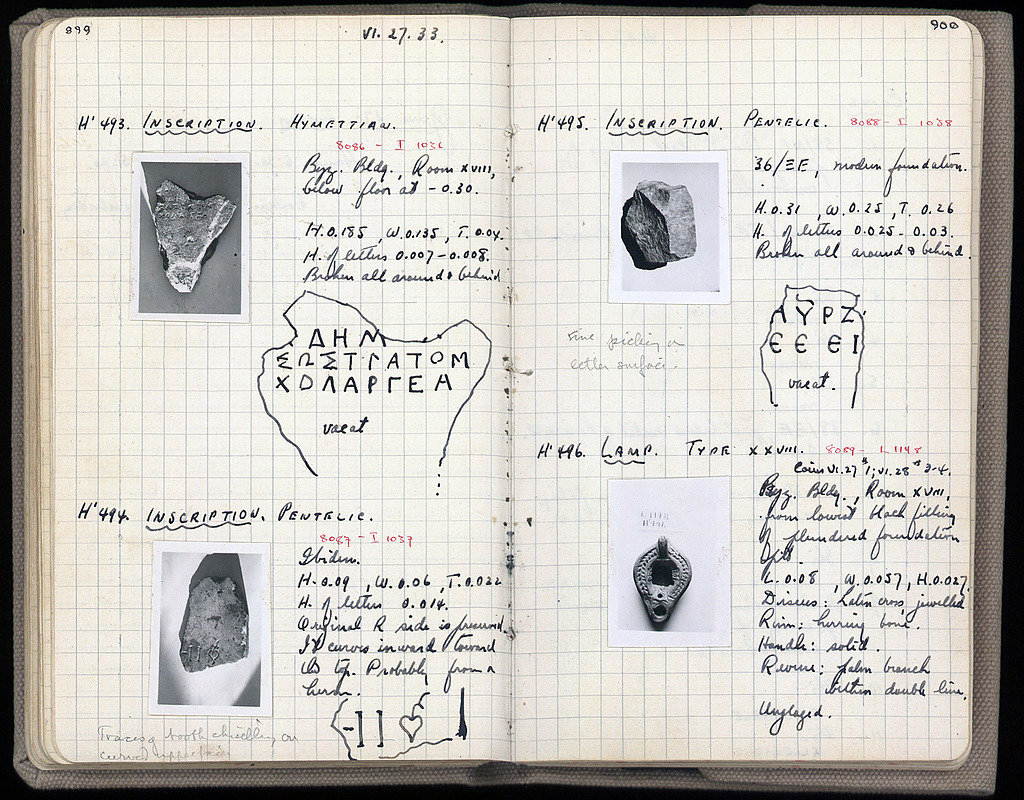 899
VI. 27. 33.
H' 493. INSCRIPTION. HYMETTIAN.
8086 - I 1036
Byz. Bldg., Room XVIII,
below floor at -0.30.
H. 0.185, W. 0.135, T. 0.04.
H. of letters 0.007-0.008.
Broken all around & behind
ΔΗΜ
ΣΩΣΤΡΑΤΟΜ
ΧΟΛΑΡΓΕΑ
vacat
H' 494. INSCRIPTION. PENTELIC.
8087 - I 1037
Ibidem.
H. 0.09, W. 0.06, T. 0.022
H. of letters 0.014.
Original R side is preserved.
It curves inward toward
its top. Probably from a
herm.
Traces of tooth chiselling on
curved
900
H' 495. INSCRIPTION. PENTELIC. 8088 - I 1038
36/ΞΕ, modern foundation.
H. 0.31, W. 0.25, T. 0.26
H. of letters 0.025-0.03.
Broken all around & behind.
Fine picking on
letter surface.
ΑΥΡΖ
Є Є Є Ι
vacat.
H' 496. LAMP. TYPE XXVIII. 8089 - L 1148
Coins VI. 27 #1; VI. 28 #3-4.
Byz. Bldg., Room XVIII,
from lowest black filling
of plundered foundation
L. 0.08, W. 0.057, H. 0.027.
Discus: Latin cross, jewelled
Rim: herring bone.
Handle: solid.
Reverse: palm branch
within double line.
Unglazed.